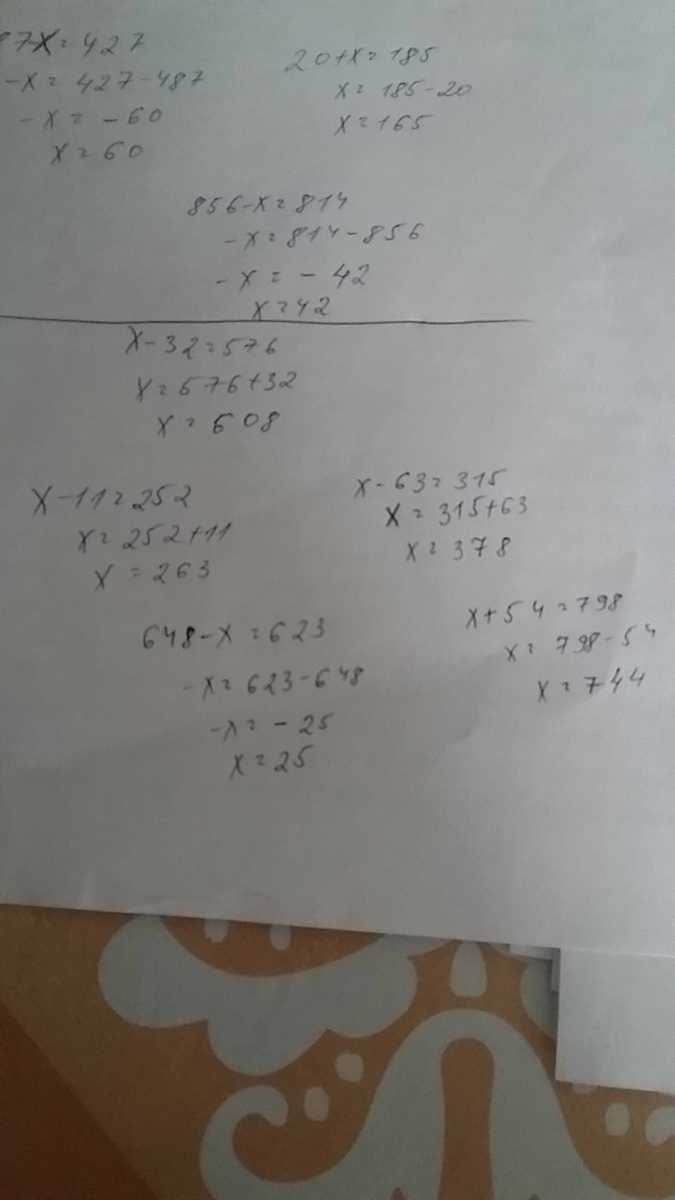 87-X=427
-X= 427-487
-X = -60
X=60
20+X=185
X= 185-20
X=165
856-X=814
-X=814-856
-X = - 42
X=42
X-32=576
X=576+32
X= 608
X-11=252
X=252+11
X =263
X-63=315
X=315+63
X=378
648-X=623
-X=623-648
-X=-25
X=25
X+54=798
X=798-54
X=744